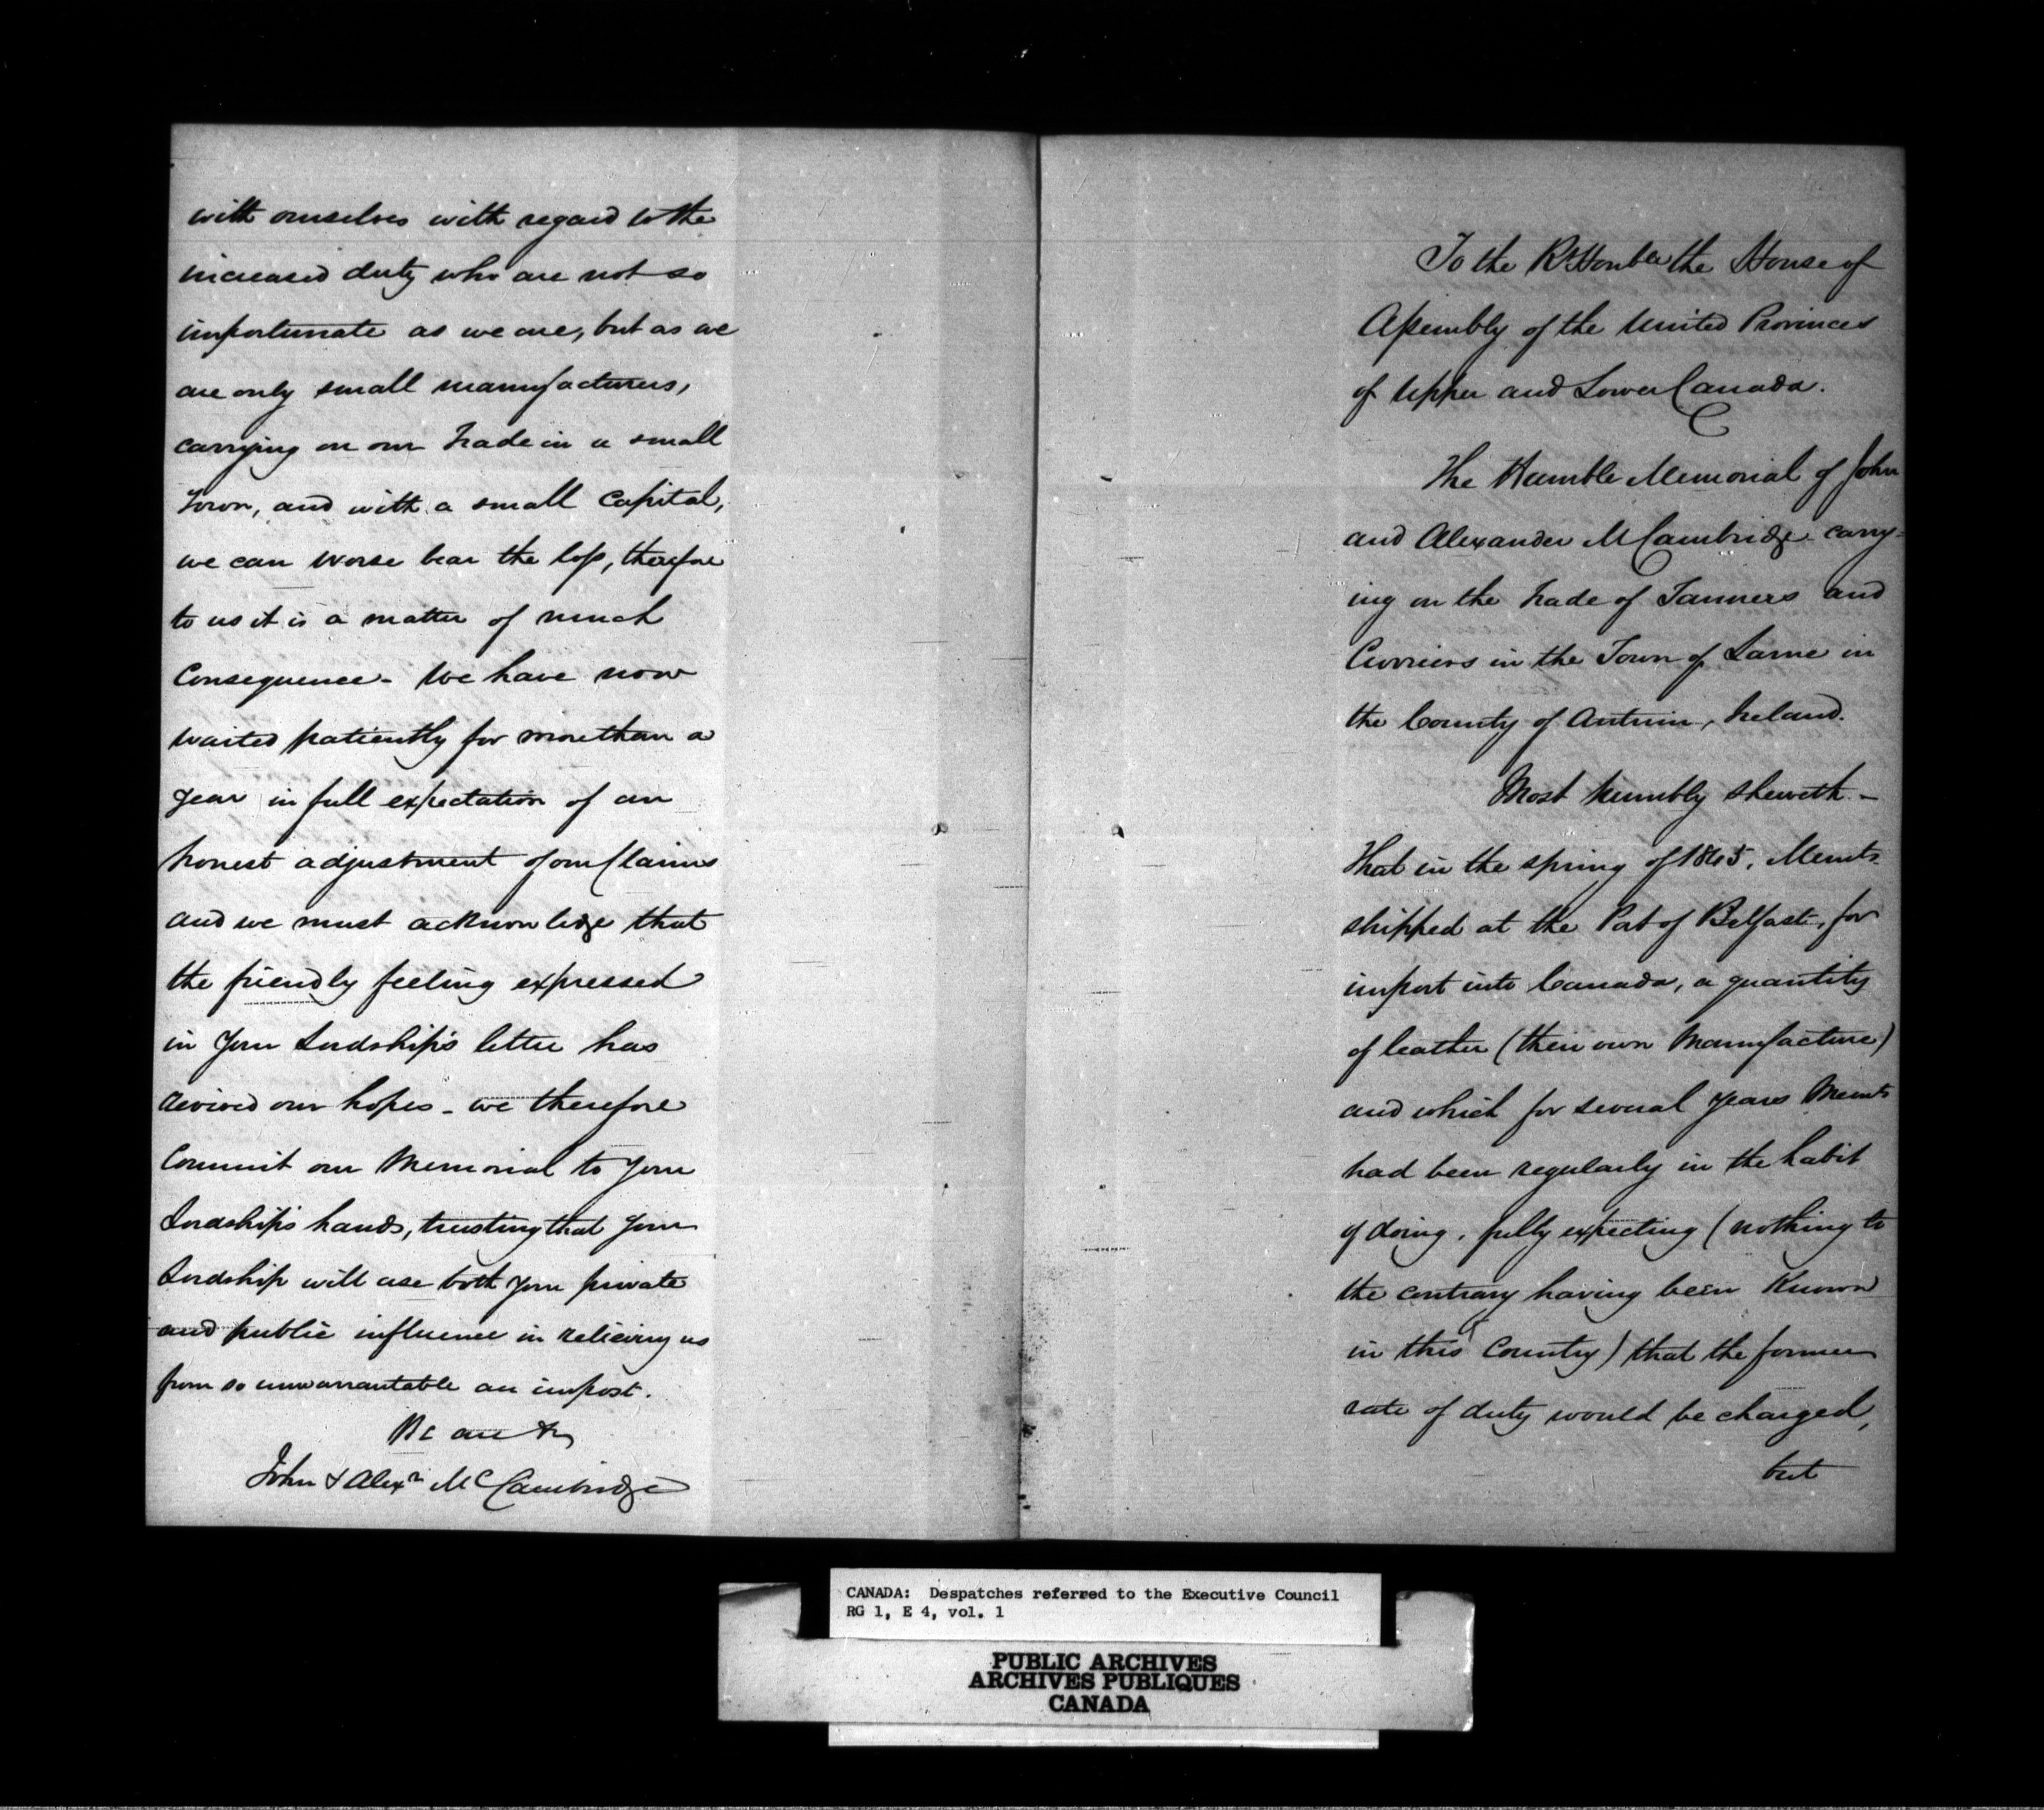 with ourselves with regard to the
increased duty who are not so
importunate as we are, but as we
are only small manufacturers,
carrying on our trade in a small
Town, and with a small Capital,
we can worse bear the loss, therefore
to us it is a matter of much
Consequence - We have now
waited patiently for more than a
year in full expectation of an
honest adjustment of our Claims
and we must acknowledge that
the friendly feeling expressed
in Your Lordship's letter has
revived our hopes - we therefore
Commit our Memorial to Your
Lordship's hands, trusting that Your
Lordship will use both your private
and public influence in relieving us
from so unwarrantable an impost.
We are &c
John & Alexr McCambridge
To the Rt Honble the House of
Assembly of the United Provinces
of Upper and Lower Canada.
The Humble Memorial of John
and Alexander McCambridge carry-
ing on the trade of Tanners and
Curriers in the Town of Larne in
the County of Antrim, Ireland.
Most humbly sheweth -
That in the spring of 1845, Memts
shipped at the Port of Belfast, for
import into Canada, a quantity
of leather (their own Manufacture)
and which for several years Memts
had been regularly in the habit
of doing, fully expecting (nothing to
the contrary having been Known
in this Country) that the former
rate of duty would be charged,
but
CANADA: Despatches referred to the Executive Council
RG 1, E 4, vol. 1
PUBLIC ARCHIVES
ARCHIVES PUBLIQUES
CANADA